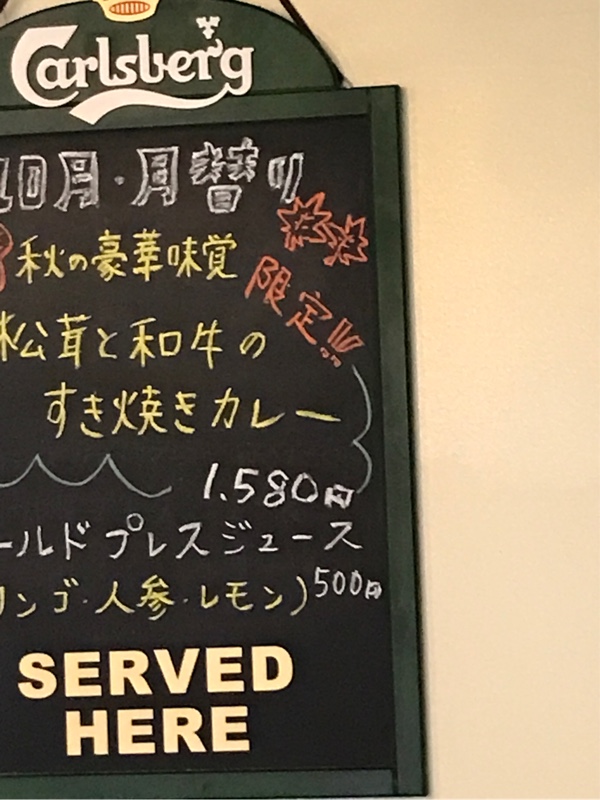 Carlsberg
10月・月替り
秋の豪華味覚
限定!!!
松茸と和牛の
すき焼きカレー
1.580円
ールドプレスジュース
リンゴ・人参・レモン)500円
SERVED
HERE